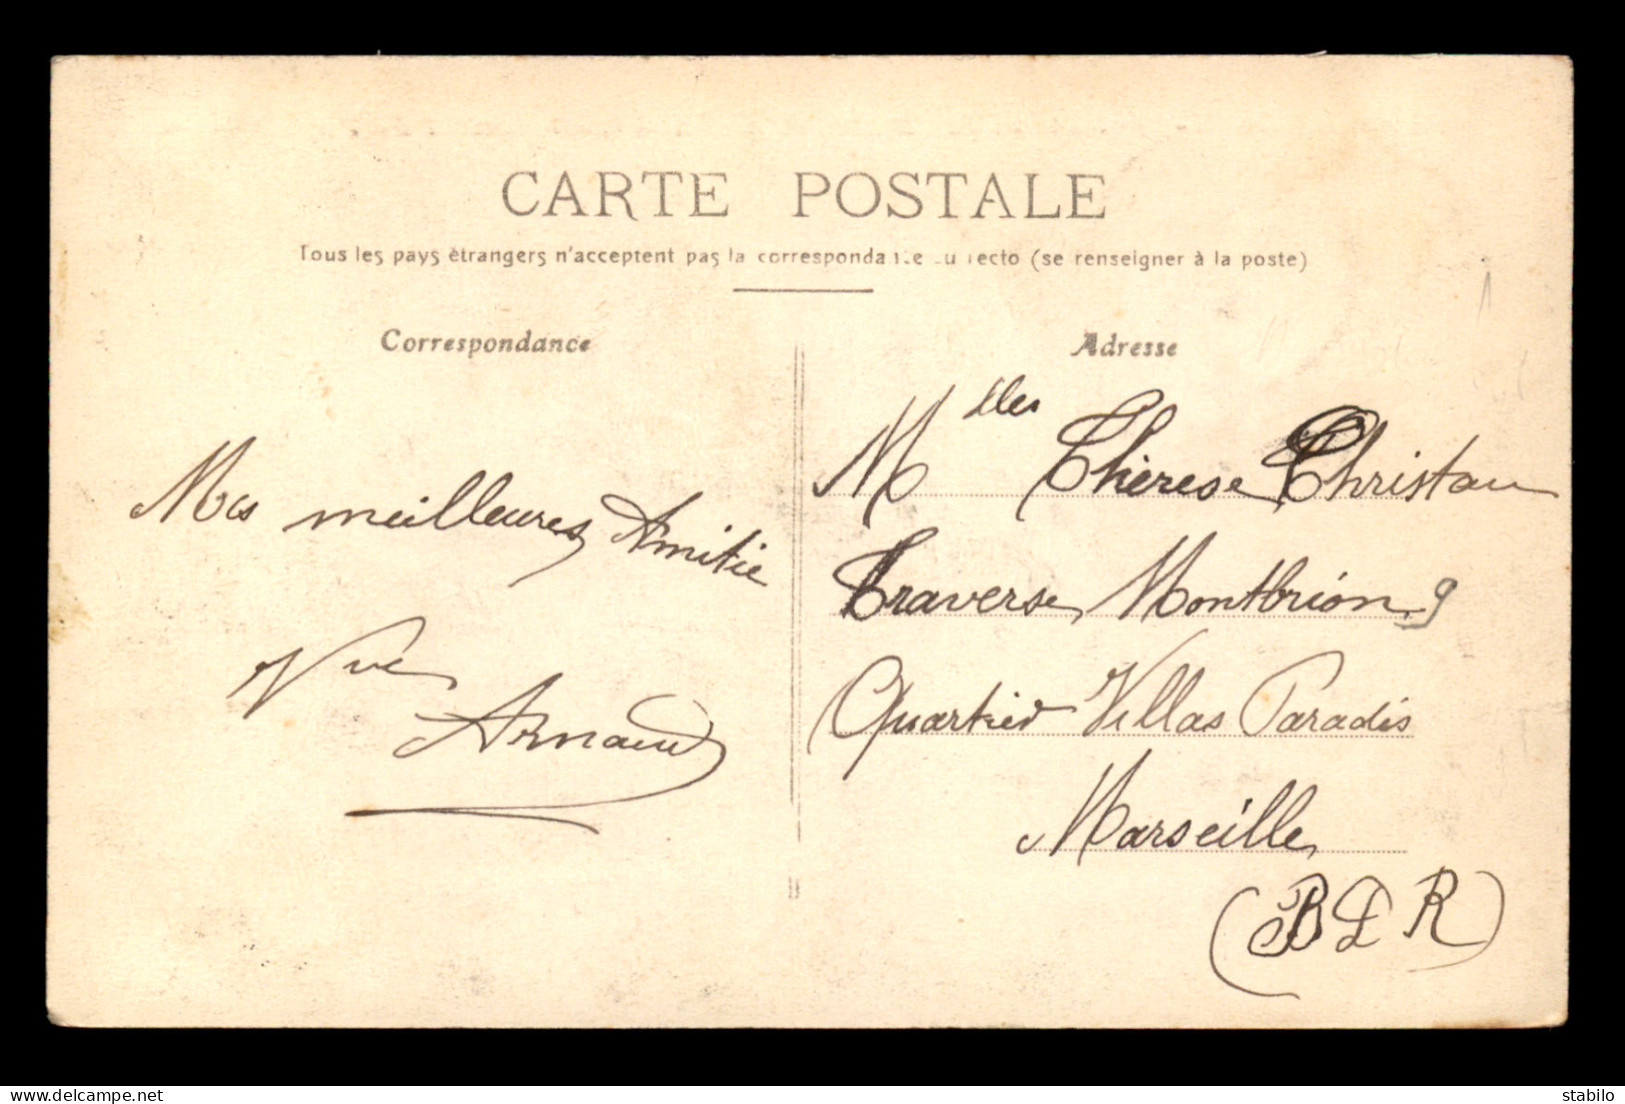 CARTE POSTALE
Tous les pays étrangers n'acceptent pas la correspondance au recto (se renseigner à la poste)
Correspondance
Mes meilleures Amitié
Vve
Arnaud
Adresse
Mlles Thérèse Christau
Traverse Montbrion 9
Quartier Villas Paradis
Marseille
(BDR)
stabilo
delcampe.net